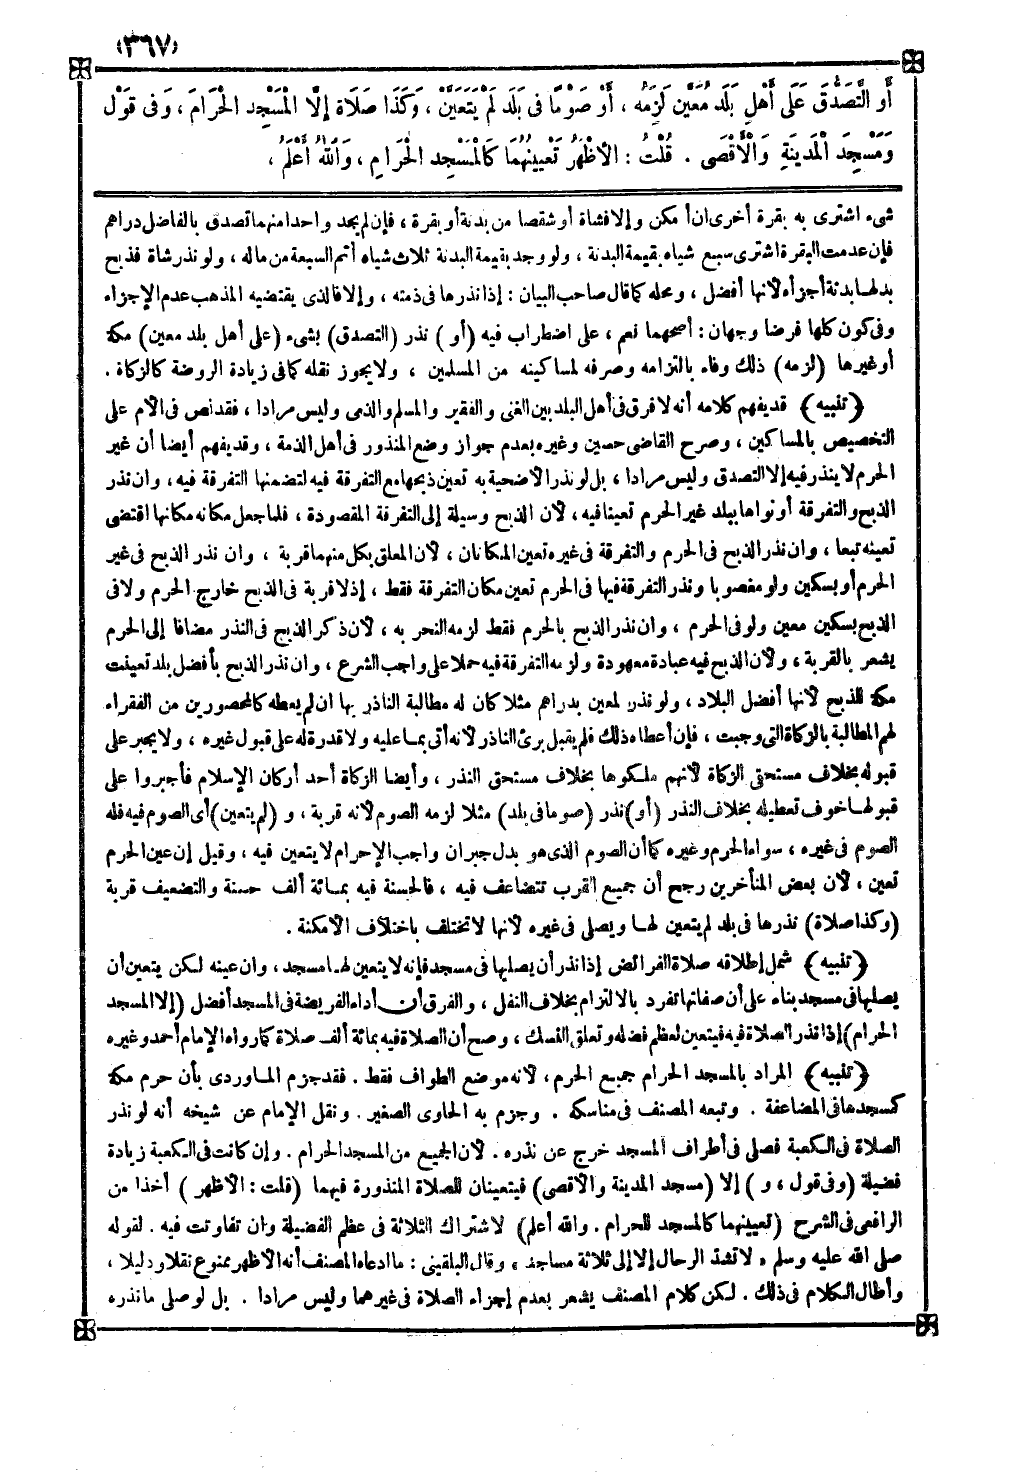 (٣٦٧)
أَوِ التَّصَدُّقَ عَلَى أَهْلِ بَلَدٍ مُعَيَّنٍ لَزِمَهُ ، أَوْ صَوْمًا فِى بَلَدٍ لَمْ يَتَعَيَّنْ ، وَكَذَا صَلَاةً إِلَّا الْمَسْجِدَ الْحَرَامَ ، وَفِى قَوْلٍ
وَمَسْجِدَ الْمَدِينَةِ وَالْأَقْصَى . قُلْتُ : الْأَظْهَرُ تَعْيِينُهُمَا كَالْمَسْجِدِ الْحَرَامِ ، وَاللهُ أَعْلَمُ ،
شىء اشترى به بقرة أخرى ان أمكن وإلا فشاة أو شقصا من بدنة أو بقرة ، فإن لم يجد واحدا منهما تصدق بالفاضل دراهم
فإن عدمت البقرة اشترى سبع شياه بقيمة البدنة ، ولو وجد بقيمة البدنة ثلاث شياه أتم السبعة من ماله ، ولو نذر شاة فذبح
بدلها بدنة أجزأه لأنها أفضل ، ومحله كما قال صاحب البيان : إذا نذرها فى ذمته ، وإلا فالذى يقتضيه المذهب عدم الإجزاء
وفى كون كلها فرضا وجهان : أصحهما نعم ، على اضطراب فيه (أو) نذر (التصدق) بشىء (على أهل بلد معين) مكة
أو غيرها (لزمه) ذلك وفاء بالتزامه وصرفه لمساكينه من المسلمين ، ولا يجوز نقله كما فى زيادة الروضة كالزكاة .
(تنبيه) قد يفهم كلامه أنه لا فرق فى أهل البلد بين الغنى والفقير والمسلم والذمى وليس مرادا ، فقد نص فى الأم على
التخصيص بالمساكين ، وصرح القاضى حسين وغيره بعدم جواز وضع المنذور فى أهل الذمة ، وقد يفهم أيضا أن غير
الحرم لا ينذر فيه إلا التصدق وليس مرادا ، بل لو نذر الأضحية به تعين ذبحها مع التفرقة فيه لتضمنها التفرقة فيه ، وان نذر
الذبح والتفرقة أو نواها ببلد غير الحرم تعينا فيه ، لأن الذبح وسيلة إلى التفرقة المقصودة ، فلما جعل مكانه مكانها اقتضى
تعينه تبعا ، وان نذر الذبح فى الحرم والتفرقة فى غيره تعين المكانان ، لأن المعلق بكل منهما قربة ، وان نذر الذبح فى غير
الحرم أو بسكين ولو مغصوبا ونذر التفرقة فيها فى الحرم تعين مكان التفرقة فقط ، إذ لا قربة فى الذبح خارج الحرم ولا فى
الذبح بسكين معين ولو فى الحرم ، وان نذر الذبح بالحرم فقط لزمه النحر به ، لأن ذكر الذبح فى النذر مضافا إلى الحرم
يشعر بالقربة ، ولأن الذبح فيه عبادة معهودة ولزمه التفرقة فيه حملا على واجب الشرع ، وان نذر الذبح بأفضل بلد تعينت
مكة للذبح لأنها أفضل البلاد ، ولو نذر لمعين بدراهم مثلا كان له مطالبة الناذر بها ان لم يعطه كالمحصورين من الفقراء
لهم المطالبة بالزكاة التى وجبت ، فإن أعطاه ذلك فلم يقبل برئ الناذر لأنه أتى بما عليه ولا قدرة له على قبول غيره ، ولا يجبر على
قبوله بخلاف مستحقى الزكاة لأنهم ملكوها بخلاف مستحق النذر ، وأيضا الزكاة أحد أركان الإسلام فأجبروا على
قبولها خوف تعطيله بخلاف النذر (أو) نذر (صوما فى بلد) مثلا لزمه الصوم لأنه قربة ، و (لم يتعين) أى الصوم فيه فله
الصوم فى غيره ، سواء الحرم وغيره كما أن الصوم الذى هو بدل جبران واجب الإحرام لا يتعين فيه ، وقيل إن عين الحرم
تعين ، لأن بعض المتأخرين رجح أن جميع القرب تتضاعف فيه ، فالحسنة فيه بمائة ألف حسنة والتضعيف قربة
(وكذا صلاة) نذرها فى بلد لم يتعين لها ويصلى فى غيره لأنها لا تختلف باختلاف الأمكنة .
(تنبيه) شمل إطلاقه صلاة الفرائض إذا نذر أن يصليها فى مسجد فإنه لا يتعين لها مسجد ، وان عينه لكن يتعين أن
يصليها فى مسجد بناء على أن صفاتها تفرد بالالتزام بخلاف النفل ، والفرق أن أداء الفريضة فى المسجد أفضل (إلا المسجد
الحرام) إذا نذر الصلاة فيه فيتعين لعظم فضله وتعلق النسك ، وصح أن الصلاة فيه بمائة ألف صلاة كما رواه الإمام أحمد وغيره
(تنبيه) المراد بالمسجد الحرام جميع الحرم ، لأنه موضع الطواف فقط . فقد جزم الماوردى بأن حرم مكة
كمسجدها فى المضاعفة . وتبعه المصنف فى مناسكه . وجزم به الحاوى الصغير . ونقل الإمام عن شيخه أنه لو نذر
الصلاة فى الكعبة فصلى فى أطراف المسجد خرج عن نذره . لأن الجميع من المسجد الحرام . وإن كانت فى الكعبة زيادة
فضيلة (وفى قول ، و) إلا (مسجد المدينة والأقصى) فيتعينان للصلاة المنذورة فيهما (قلت : الأظهر) أخذا من
الرافعى فى الشرح (تعيينهما كالمسجد الحرام . والله أعلم) لاشتراك الثلاثة فى عظم الفضيلة وان تفاوتت فيه . لقوله
صلى الله عليه وسلم « لا تشد الرحال إلا إلى ثلاثة مساجد » وقال البلقينى : ما ادعاه المصنف أنه الأظهر ممنوع نقلا ودليلا ،
وأطال الكلام فى ذلك . لكن كلام المصنف يشعر بعدم إجزاء الصلاة فى غيرهما وليس مرادا . بل لو صلى ما نذره